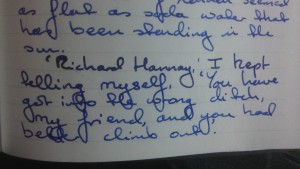 seemed
as flat as soda water that
had been standing in the
sun.
'Richard Hannay,' I kept
telling myself, 'You have
got into the wrong ditch,
my friend, and you had
better climb out.'